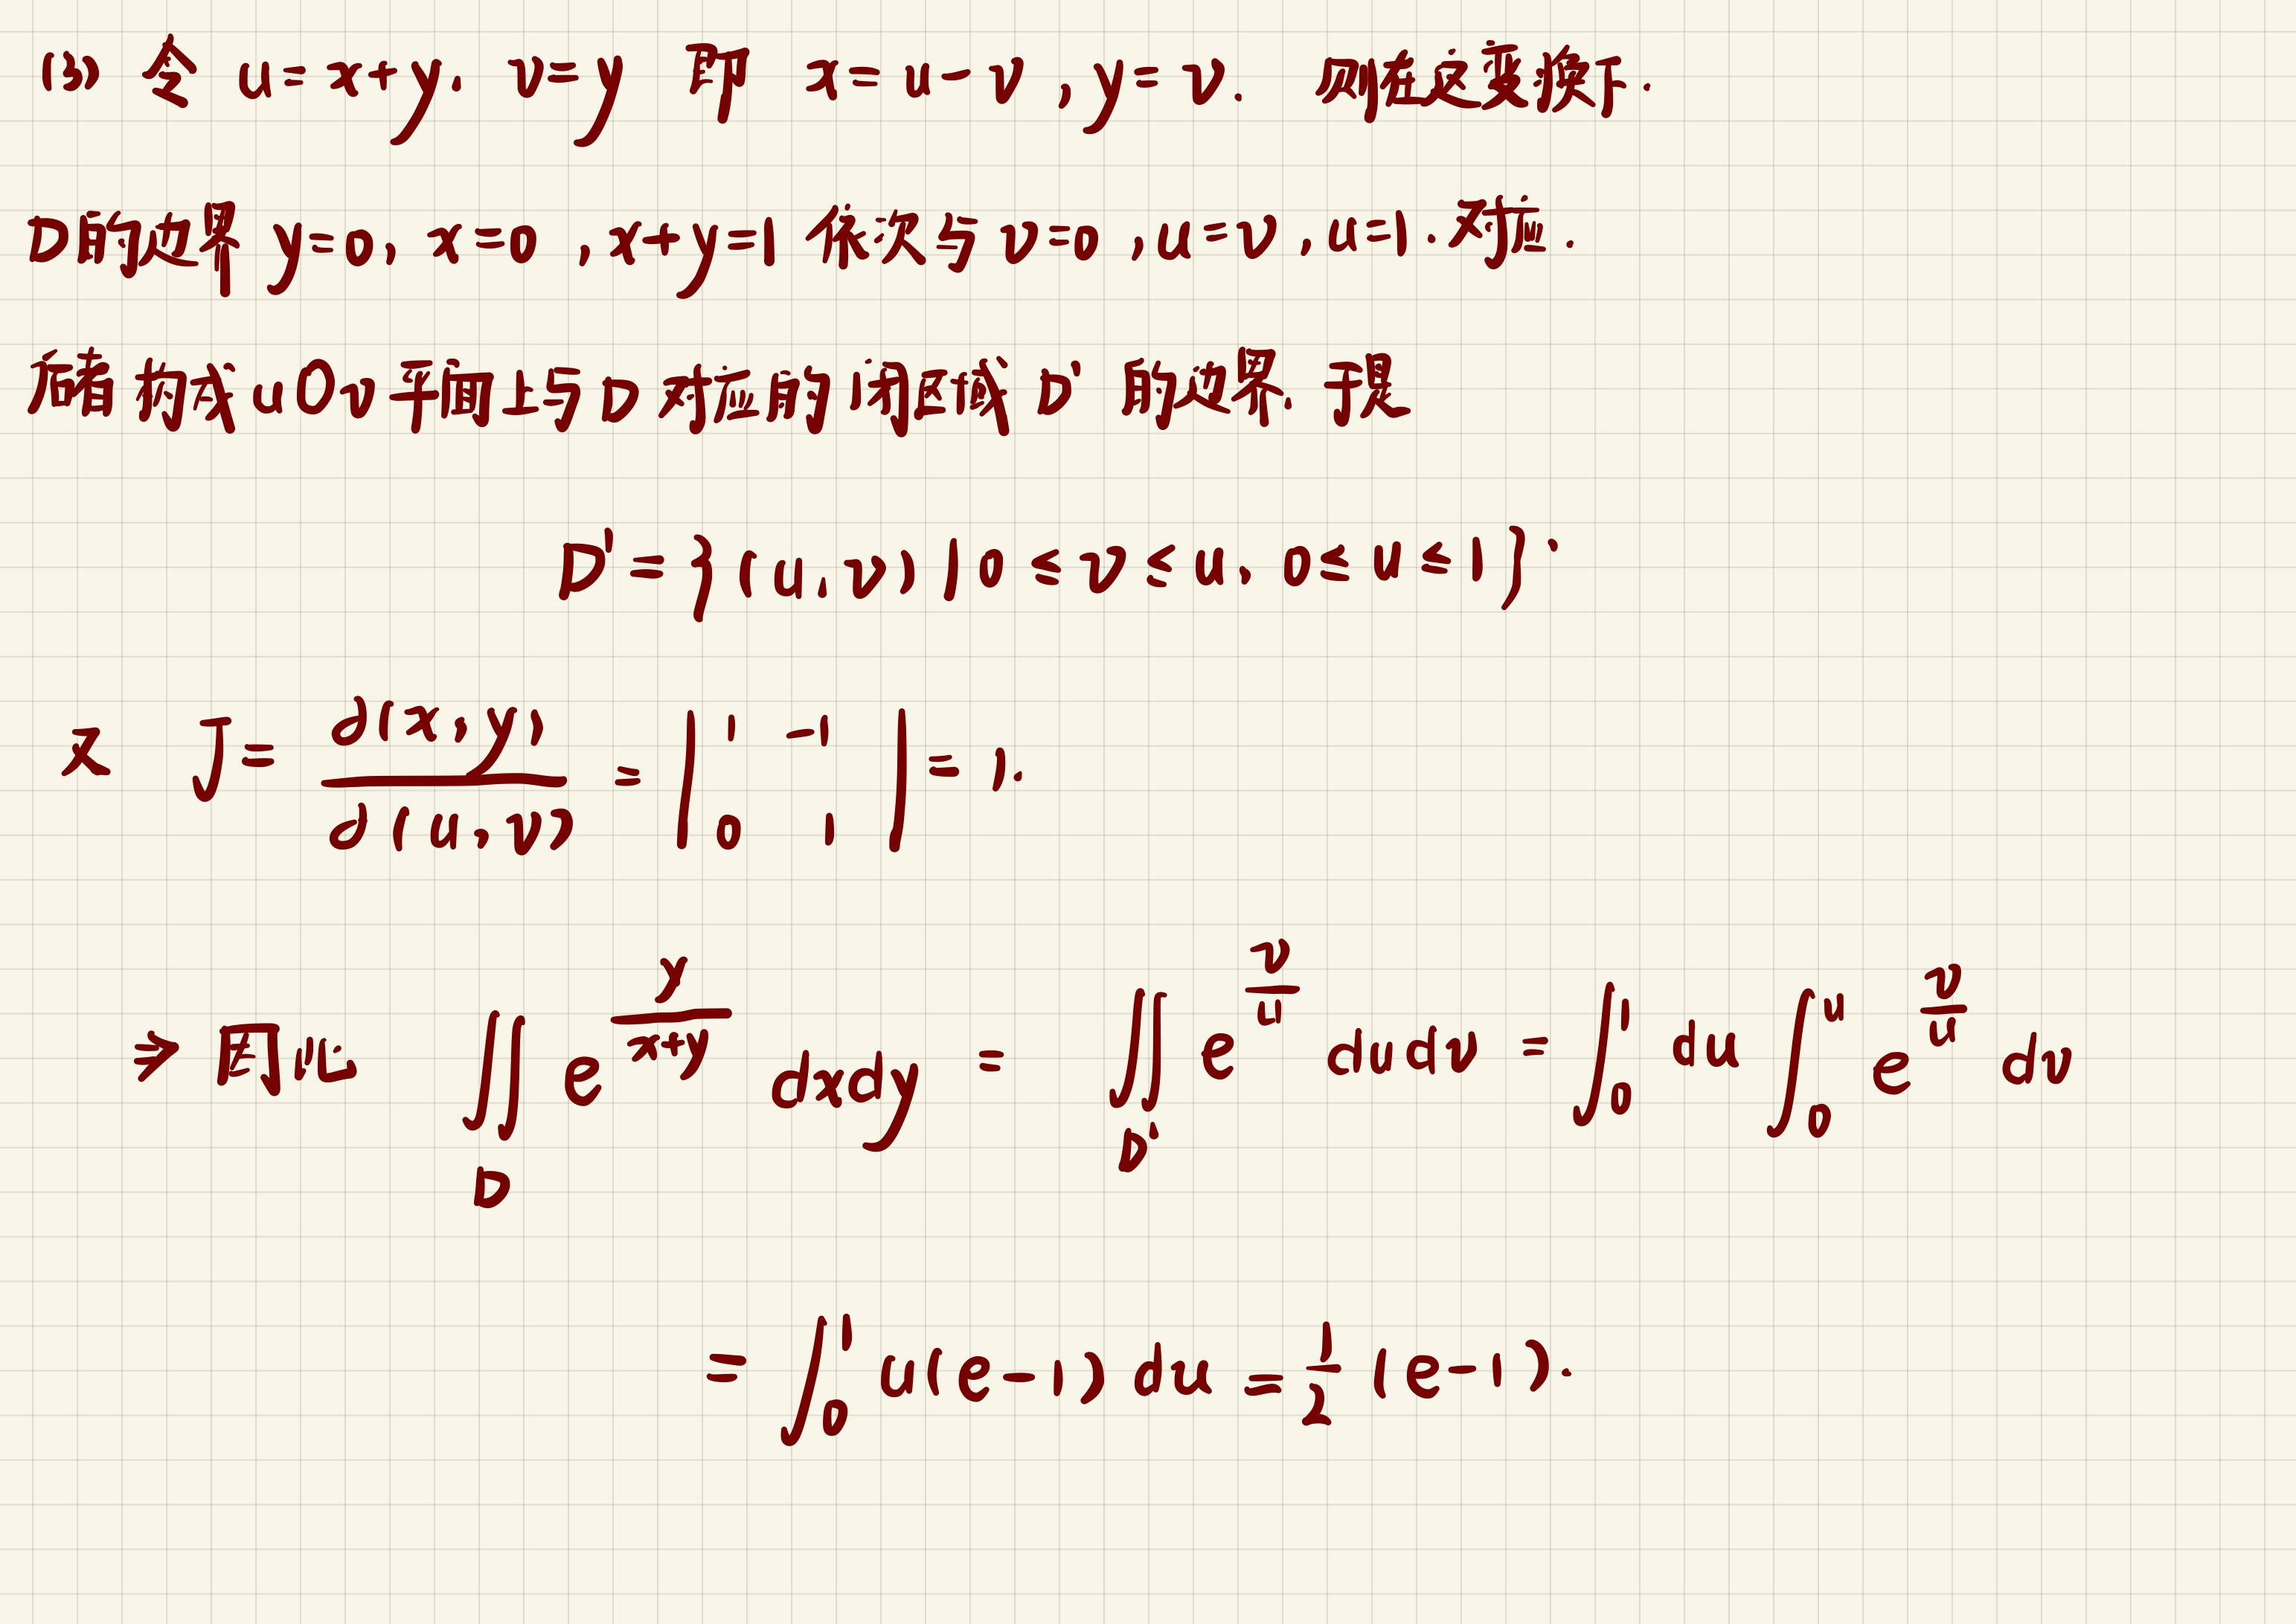 (3) 令 u=x+y, v=y 即 x=u-v, y=v. 则在这变换下.
D的边界 y=0, x=0, x+y=1 依次与 v=0, u=v, u=1. 对应.
后者构成 uOv平面上与D对应的闭区域 D' 的边界. 于是
D'={(u,v)|0≤v≤u, 0≤u≤1}.
又 J= ∂(x,y)/∂(u,v) = |1 -1; 0 1| = 1.
⇒ 因此 ∬_D e^{y/(x+y)} dxdy = ∬_{D'} e^{v/u} dudv = ∫_0^1 du ∫_0^u e^{v/u} dv
= ∫_0^1 u(e-1) du = 1/2 (e-1).